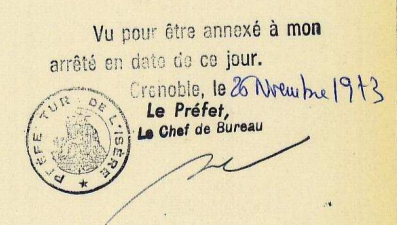 Vu pour être annexé à mon
arrêté en date de ce jour.
Grenoble, le 26 Novembre 1973
Le Préfet,
Le Chef de Bureau
PRÉFECTURE DE L'ISÈRE